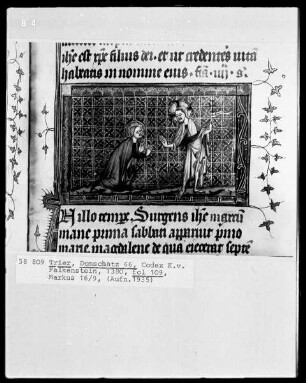 ihc est xpc filius dei. et ut credentes uitã
habeatis in nomine eius. fã iiij s.
Illo tempore. Surgens ihc mane
mane prima sabbati apparuit primo
marie magdalene de qua eiecerat septẽ
58 809 Trier, Domschatz 66, Codex K.v.
Falkenstein, 1380, fol 109,
Markus 16/9, (Aufn.1935)